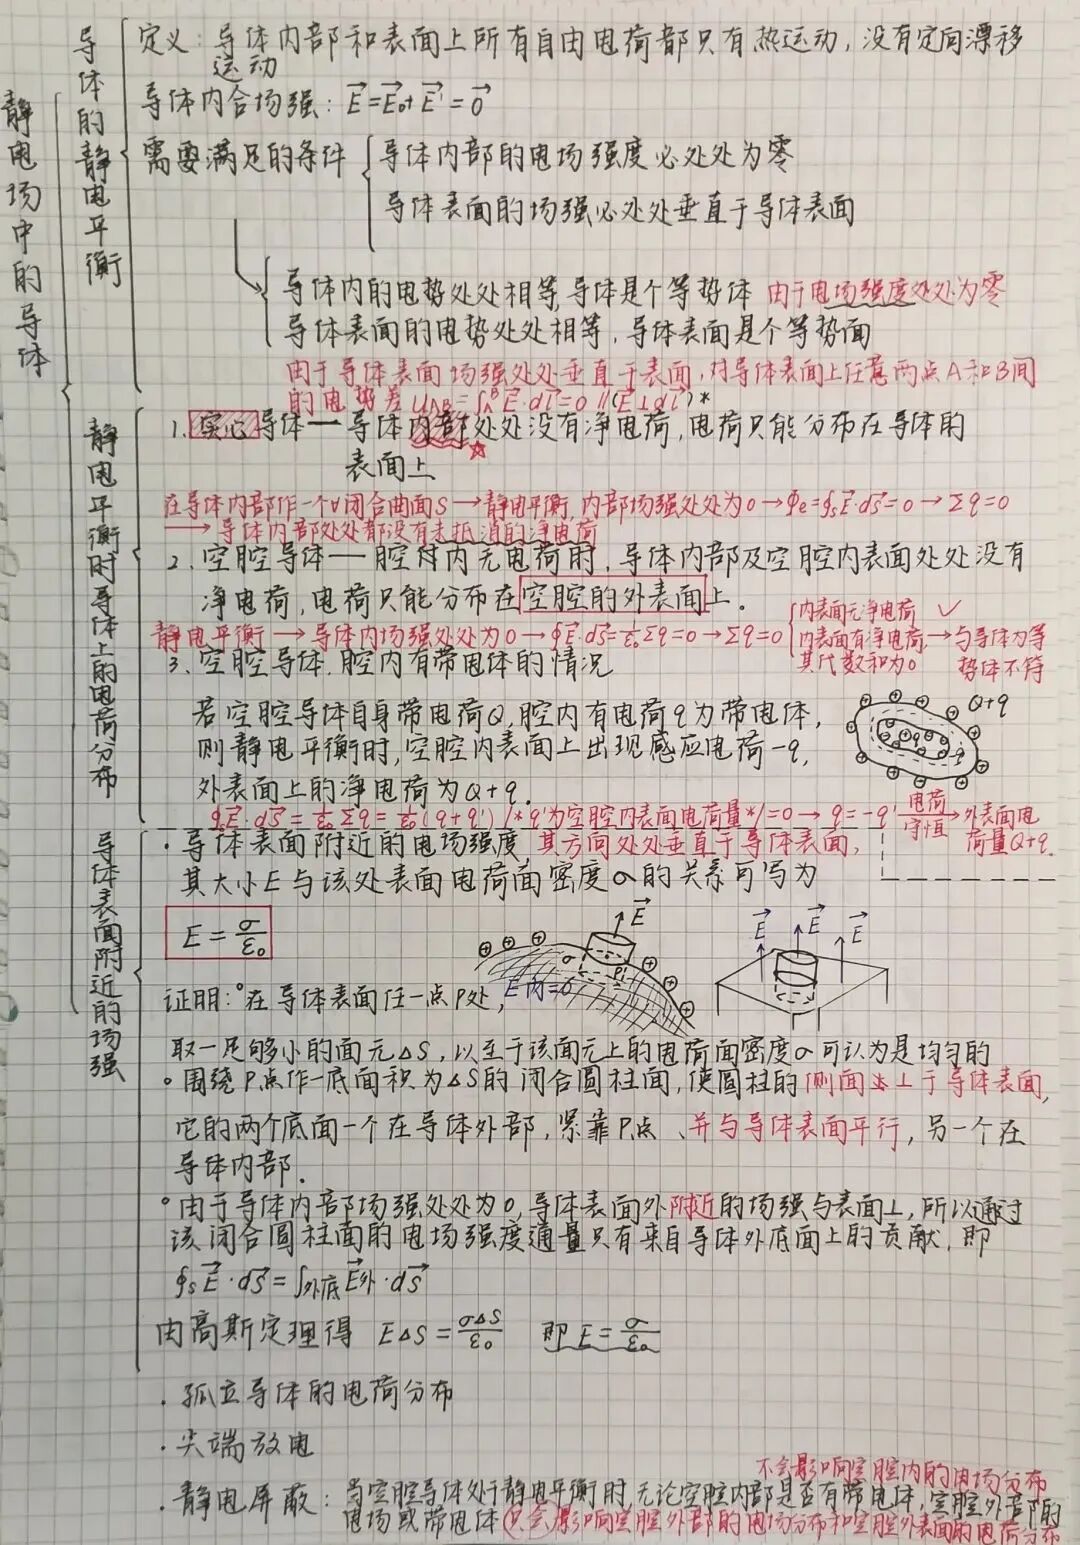 静电场中的导体
导体的静电平衡
定义：导体内部和表面上所有自由电荷都只有热运动，没有定向漂移
运动
导体内合场强：E⃗=E⃗₀+E⃗'=0⃗
需要满足的条件
导体内部的电场强度必处处为零
导体表面的场强必处处垂直于导体表面
导体内的电势处处相等，导体是个等势体 由于电场强度处处为零
导体表面的电势处处相等，导体表面是个等势面
由于导体表面场强处处垂直于表面，对导体表面上任意两点A和B间
的电势差U_AB=∫_A^B E⃗·dl⃗=0 //(E⃗⊥dl⃗)*
静电平衡时导体上的电荷分布
1. 实心导体——导体内部处处没有净电荷，电荷只能分布在导体的
表面上
在导体内部作一个∀闭合曲面S→静电平衡，内部场强处处为0→Φe=∮s E⃗·dS⃗=0→Σq=0
→导体内部处处都没有未抵消的净电荷
2. 空腔导体——腔内无电荷时，导体内部及空腔内表面处处没有
净电荷，电荷只能分布在空腔的外表面上.
静电平衡→导体内场强处处为0→∮E⃗·dS⃗=1/ε₀ Σq=0→Σq=0
内表面无净电荷 ✓
内表面有净电荷，→与导体为等
其代数和为0 势体不符
3. 空腔导体，腔内有带电体的情况
若空腔导体自身带电荷Q，腔内有电荷q为带电体，
则静电平衡时，空腔内表面上出现感应电荷-q，
外表面上的净电荷为Q+q.
Q+q
q
-q
∮E⃗·dS⃗=1/ε₀ Σq=1/ε₀(q+q') /*q'为空腔内表面电荷量*/=0→q=-q' 电荷守恒→外表面电
荷量Q+q.
导体表面附近的场强
·导体表面附近的电场强度，其方向处处垂直于导体表面，
其大小E与该处表面电荷面密度σ的关系可写为
E=σ/ε₀
E⃗
σ
P
E内=0
E⃗ E⃗ E⃗
证明：°在导体表面任一点P处，
取一足够小的面元ΔS，以至于该面元上的电荷面密度σ可认为是均匀的
°围绕P点作一底面积为ΔS的闭合圆柱面，使圆柱的侧面⊥于导体表面，
它的两个底面一个在导体外部，紧靠P点、并与导体表面平行，另一个在
导体内部.
°由于导体内部场强处处为0，导体表面外附近的场强与表面⊥，所以通过
该闭合圆柱面的电场强度通量只有来自导体外底面上的贡献，即
∮s E⃗·dS⃗=∫外底 E⃗外·dS⃗
由高斯定理得 EΔS=σΔS/ε₀ 即E=σ/ε₀
·孤立导体的电荷分布
·尖端放电
不会影响空腔内的电场分布
·静电屏蔽：当空腔导体处于静电平衡时，无论空腔内部是否有带电体，空腔外部的
电场或带电体只会影响空腔外部的电场分布和空腔外表面的电荷分布